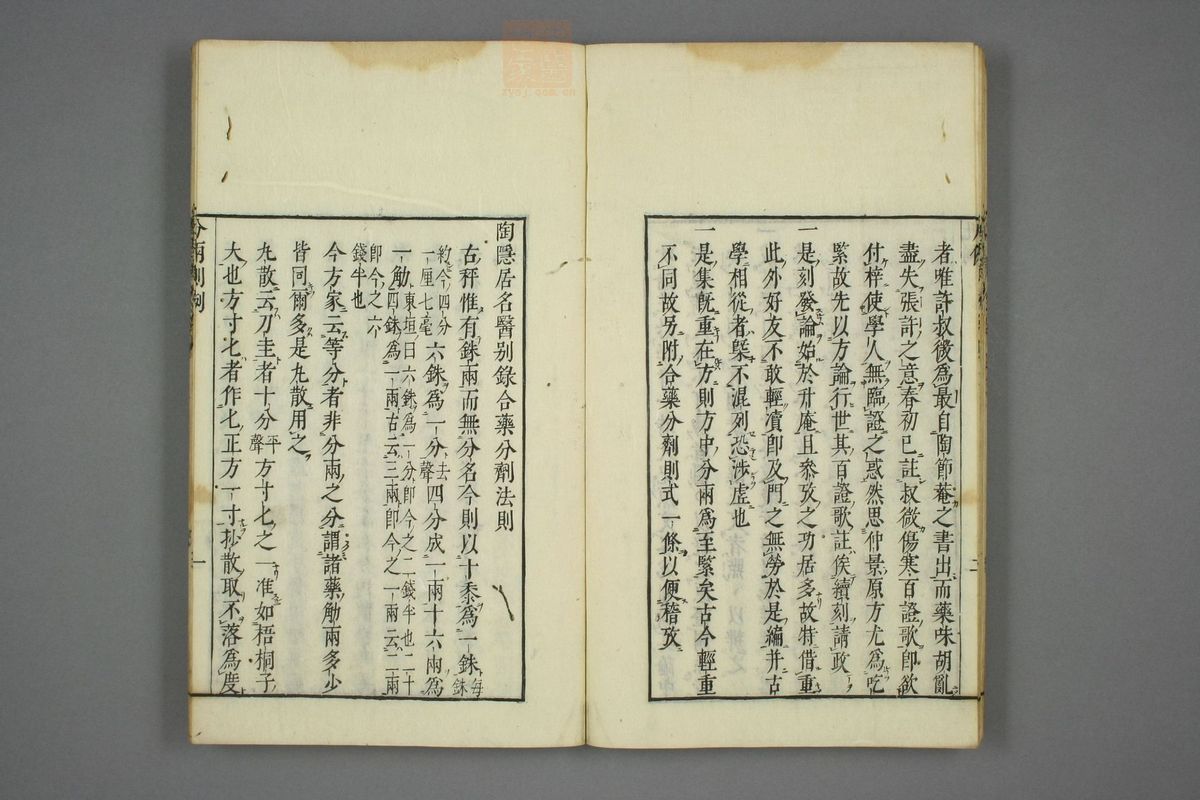 者唯許叔微爲最自陶節菴之書出而藥味胡亂
盡失張許之意春初已註叔微傷寒百證歌卽欲
付梓使學人無臨證之惑然思仲景原方尤爲吃
緊故先以方論行世其百證歌註俟續刻請政
一是刻發論始於升庵且叅攷之功居多故特借重
此外好友不敢輕瀆卽及門之無勞於是編并古
學相從者槩不混列恐涉虛也
一是集旣重在方則方中分兩爲至緊矣古今輕重
不同故另附合藥分劑則式一條以便稽攷
陶隱居名醫别錄合藥分劑法則
古秤惟有銖兩而無分名今則以十黍爲一銖每銖
約今四分一厘七毫六銖爲一分去聲四分成一兩十六兩爲
一觔東垣曰六銖爲一分卽今之二錢半也二十四銖爲一兩古云三兩卽今之一兩云二兩
卽今之六錢半也
今方家云等分者非分兩之分謂諸藥觔兩多少
皆同爾多是丸散用之
丸散云刀圭者十分平聲方寸匕之一准如梧桐子
大也方寸匕者作匕正方一寸抄散取不落爲度
分兩則例
一
二
zysj.com.cn